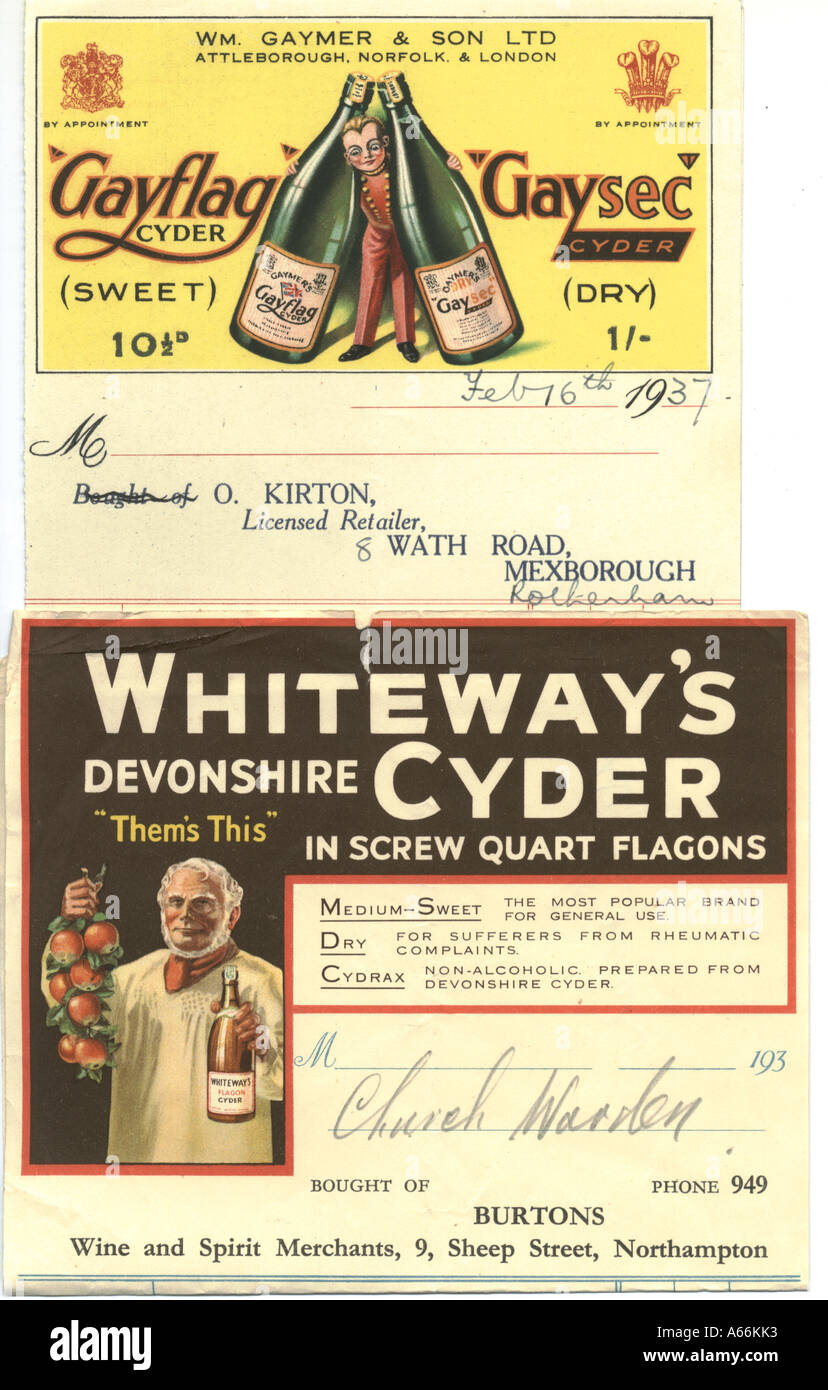 WM. GAYMER & SON LTD
ATTLEBOROUGH, NORFOLK. & LONDON
BY APPOINTMENT
BY APPOINTMENT
"Gayflag"
CYDER
(SWEET)
10½D
"Gaysec"
CYDER
(DRY)
1/-
GAYMER'S
Gayflag
CYDER
GAYMER'S
DRY
"Gaysec
CYDER
Feb 16th 1937
M
Bought of O. KIRTON,
Licensed Retailer,
8 WATH ROAD,
MEXBOROUGH
Rotherham
WHITEWAY'S
DEVONSHIRE CYDER
"Them's This"
IN SCREW QUART FLAGONS
MEDIUM-SWEET THE MOST POPULAR BRAND
FOR GENERAL USE.
DRY FOR SUFFERERS FROM RHEUMATIC
COMPLAINTS.
CYDRAX NON-ALCOHOLIC. PREPARED FROM
DEVONSHIRE CYDER.
WHITEWAY'S
FLAGON
CYDER
M 193
Church Warden
BOUGHT OF PHONE 949
BURTONS
Wine and Spirit Merchants, 9, Sheep Street, Northampton
alamy
alamy
alamy
alamy
alamy
Image ID: A66KK3
www.alamy.com